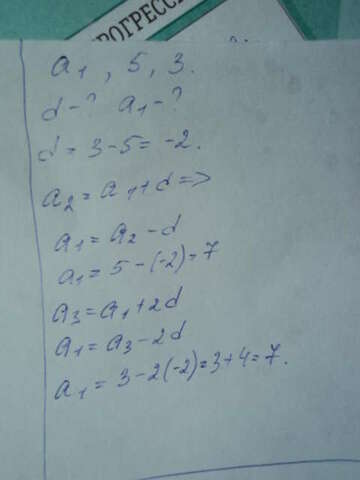 РОГРЕСС
a₁, 5, 3.
d-? a₁-?
d = 3-5 = -2.
a₂ = a₁+d =>
a₁ = a₂ - d
a₁ = 5 - (-2) = 7
a₃ = a₁ + 2d
a₁ = a₃ - 2d
a₁ = 3 - 2(-2) = 3+4 = 7.